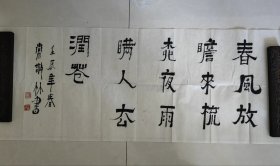 春風放
膽來梳
柳夜雨
瞞人去
潤花
年春
書